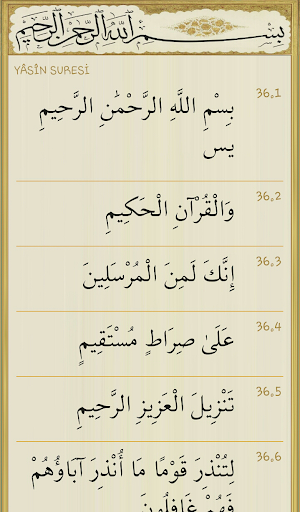 بسم الله الرحمن الرحيم
YÂSÎN SURESİ
36,1
بِسْمِ اللَّهِ الرَّحْمَٰنِ الرَّحِيمِ
يس
36,2
وَالْقُرْآنِ الْحَكِيمِ
36,3
إِنَّكَ لَمِنَ الْمُرْسَلِينَ
36,4
عَلَىٰ صِرَاطٍ مُسْتَقِيمٍ
36,5
تَنْزِيلَ الْعَزِيزِ الرَّحِيمِ
36,6
لِتُنْذِرَ قَوْمًا مَا أُنْذِرَ آبَاؤُهُمْ
فَهُمْ غَافِلُونَ